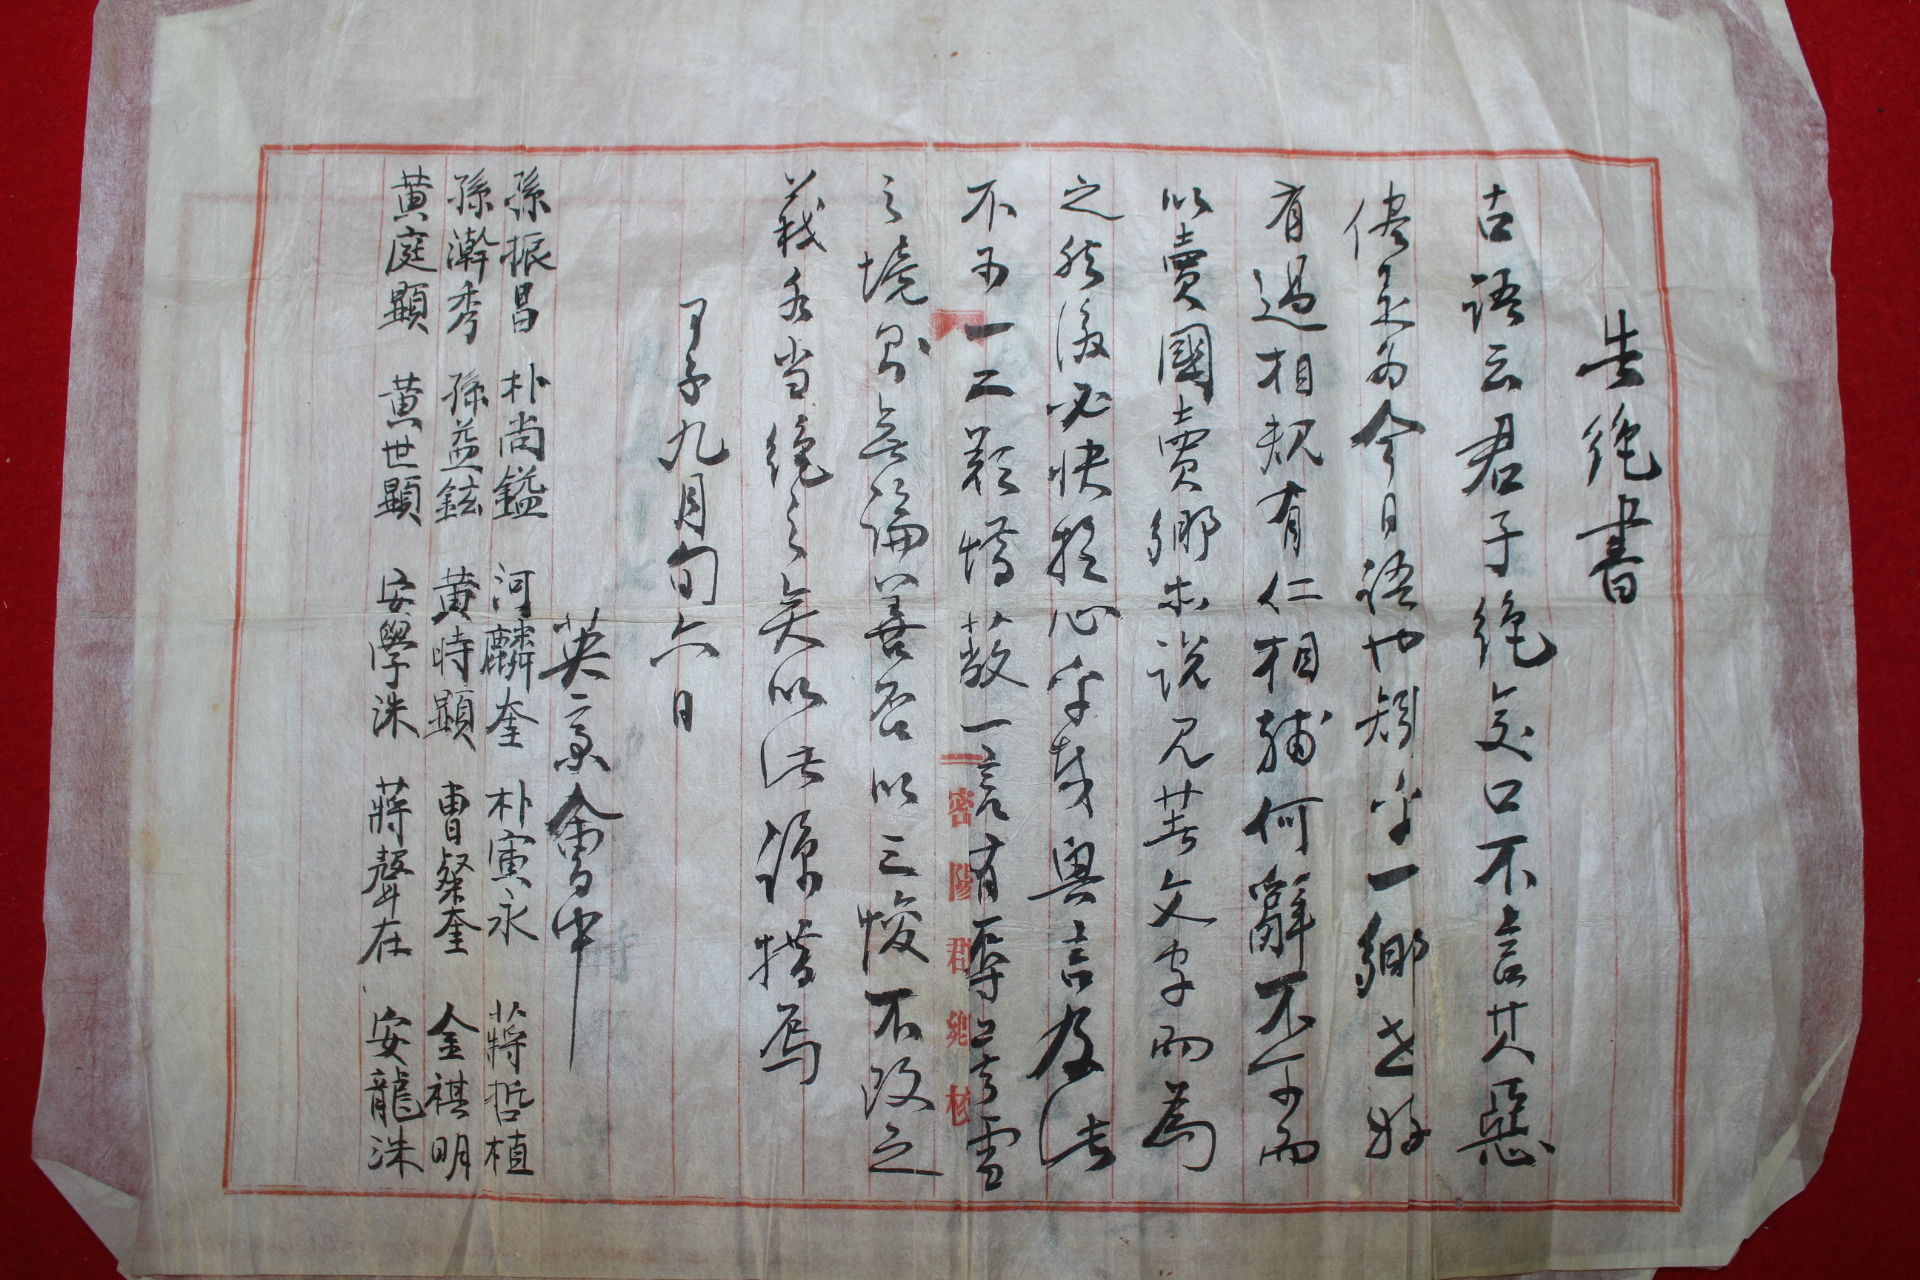 告絶書
古語云君子絶交口不言其惡
儘是爲今日語也矧乎一鄕之好
有過相規有仁相輔何辭不可而
以賣國賣鄕亦說見若文字而爲
之然後必快於心乎哉輿言及此
不可一二難憤蔽一言有辱
之境則無論善否以三悛不改之
義永當絶之矣以此諒措焉
甲子九月旬六日
英京會中
孫振昌 朴尚鎰 河麟奎 朴寅永 蔣哲植
孫瀚秀 孫益鉉 黃時顯 曺粲奎 金祺明
黃庭顯 黃世顯 安學洙 蔣聲在 安龍洙
密陽郡